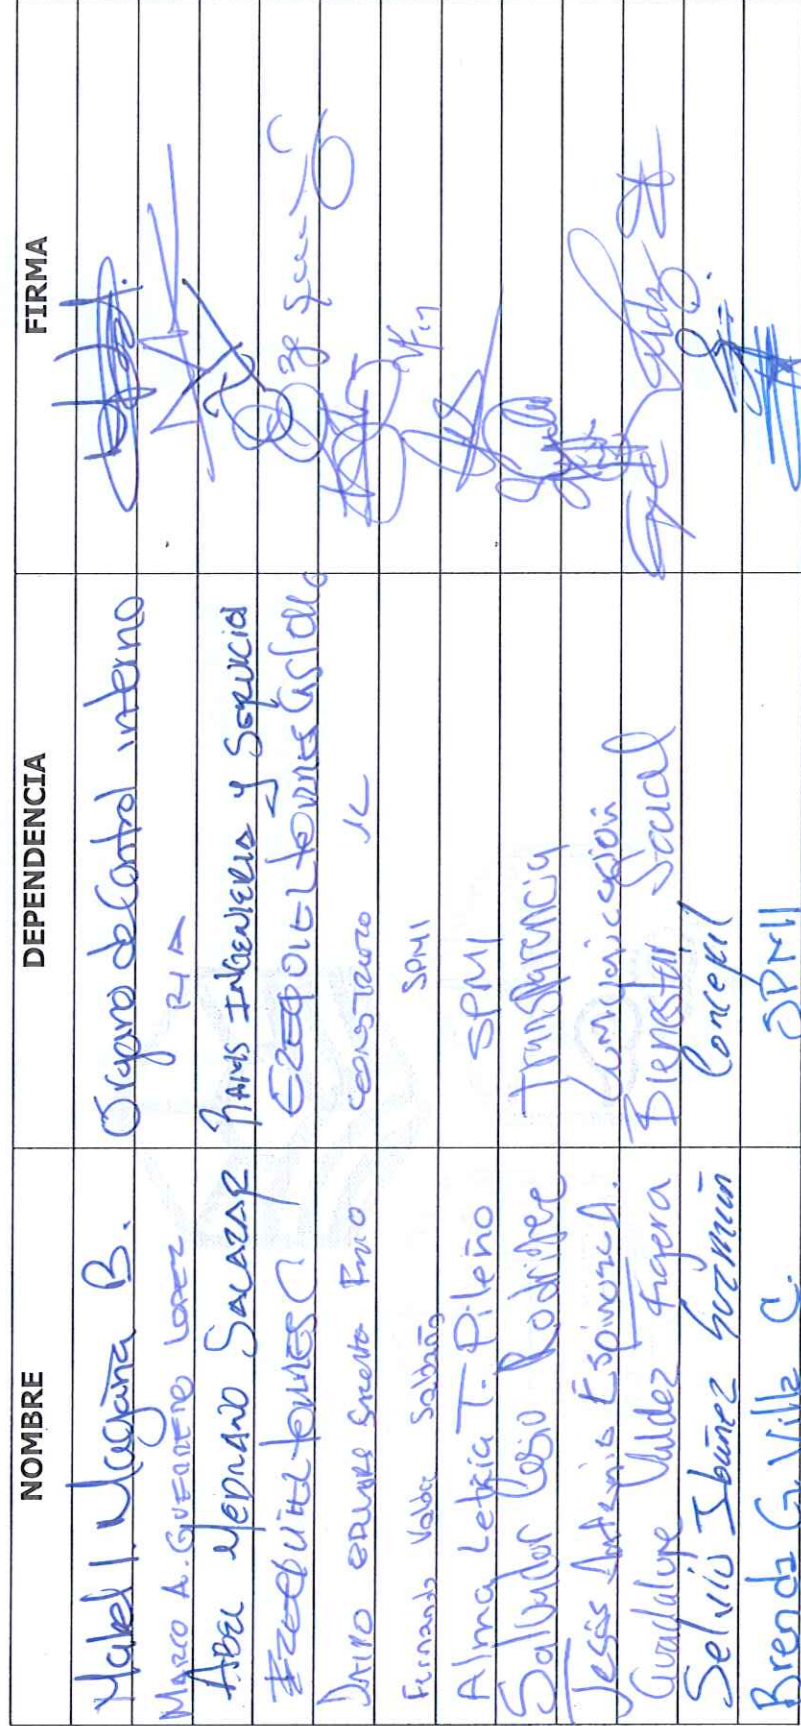 NOMBRE DEPENDENCIA FIRMA
Mabel I. Magaña B. Órgano de Control interno
MARCO A. GUERRERO LOPEZ
ABEL MEDRANO SALAZAR RAMS INGENIERIA Y SERVICIO
EZEQUIEL TORRES C EZEQUIEL TORRES Castillo
DAIRO
Fernando Valdez Saldaña SPMI
Alma Leticia T. Pileño SPMI
Salvador Cosio Rodriguez Transparencia
Jesús Antonio Espinoza A. Comunicación
Guadalupe Valdez Figera Bienestar Social
Selvio Ibañez Guzmán
Brenda G. Villa C. SPMI